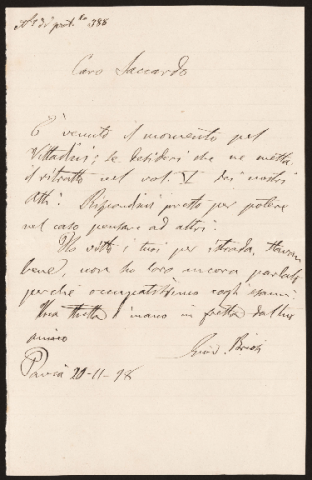 N.º di prot.llo 388
Caro Saccardo
È venuto il momento pel
Vittadini; se desideri che ne metta
il ritratto nel vol. V dei nostri
Atti. Rispondimi presto per potere
nel caso pensare ad altri.
Ho visto i tuoi per istrada, stavan
bene, non ho loro ancora parlato
perchè occupatissimo cogli esami.
Una stretta di mano in fretta dal tuo
amico
Giov. Briosi
Pavia 20-11-98